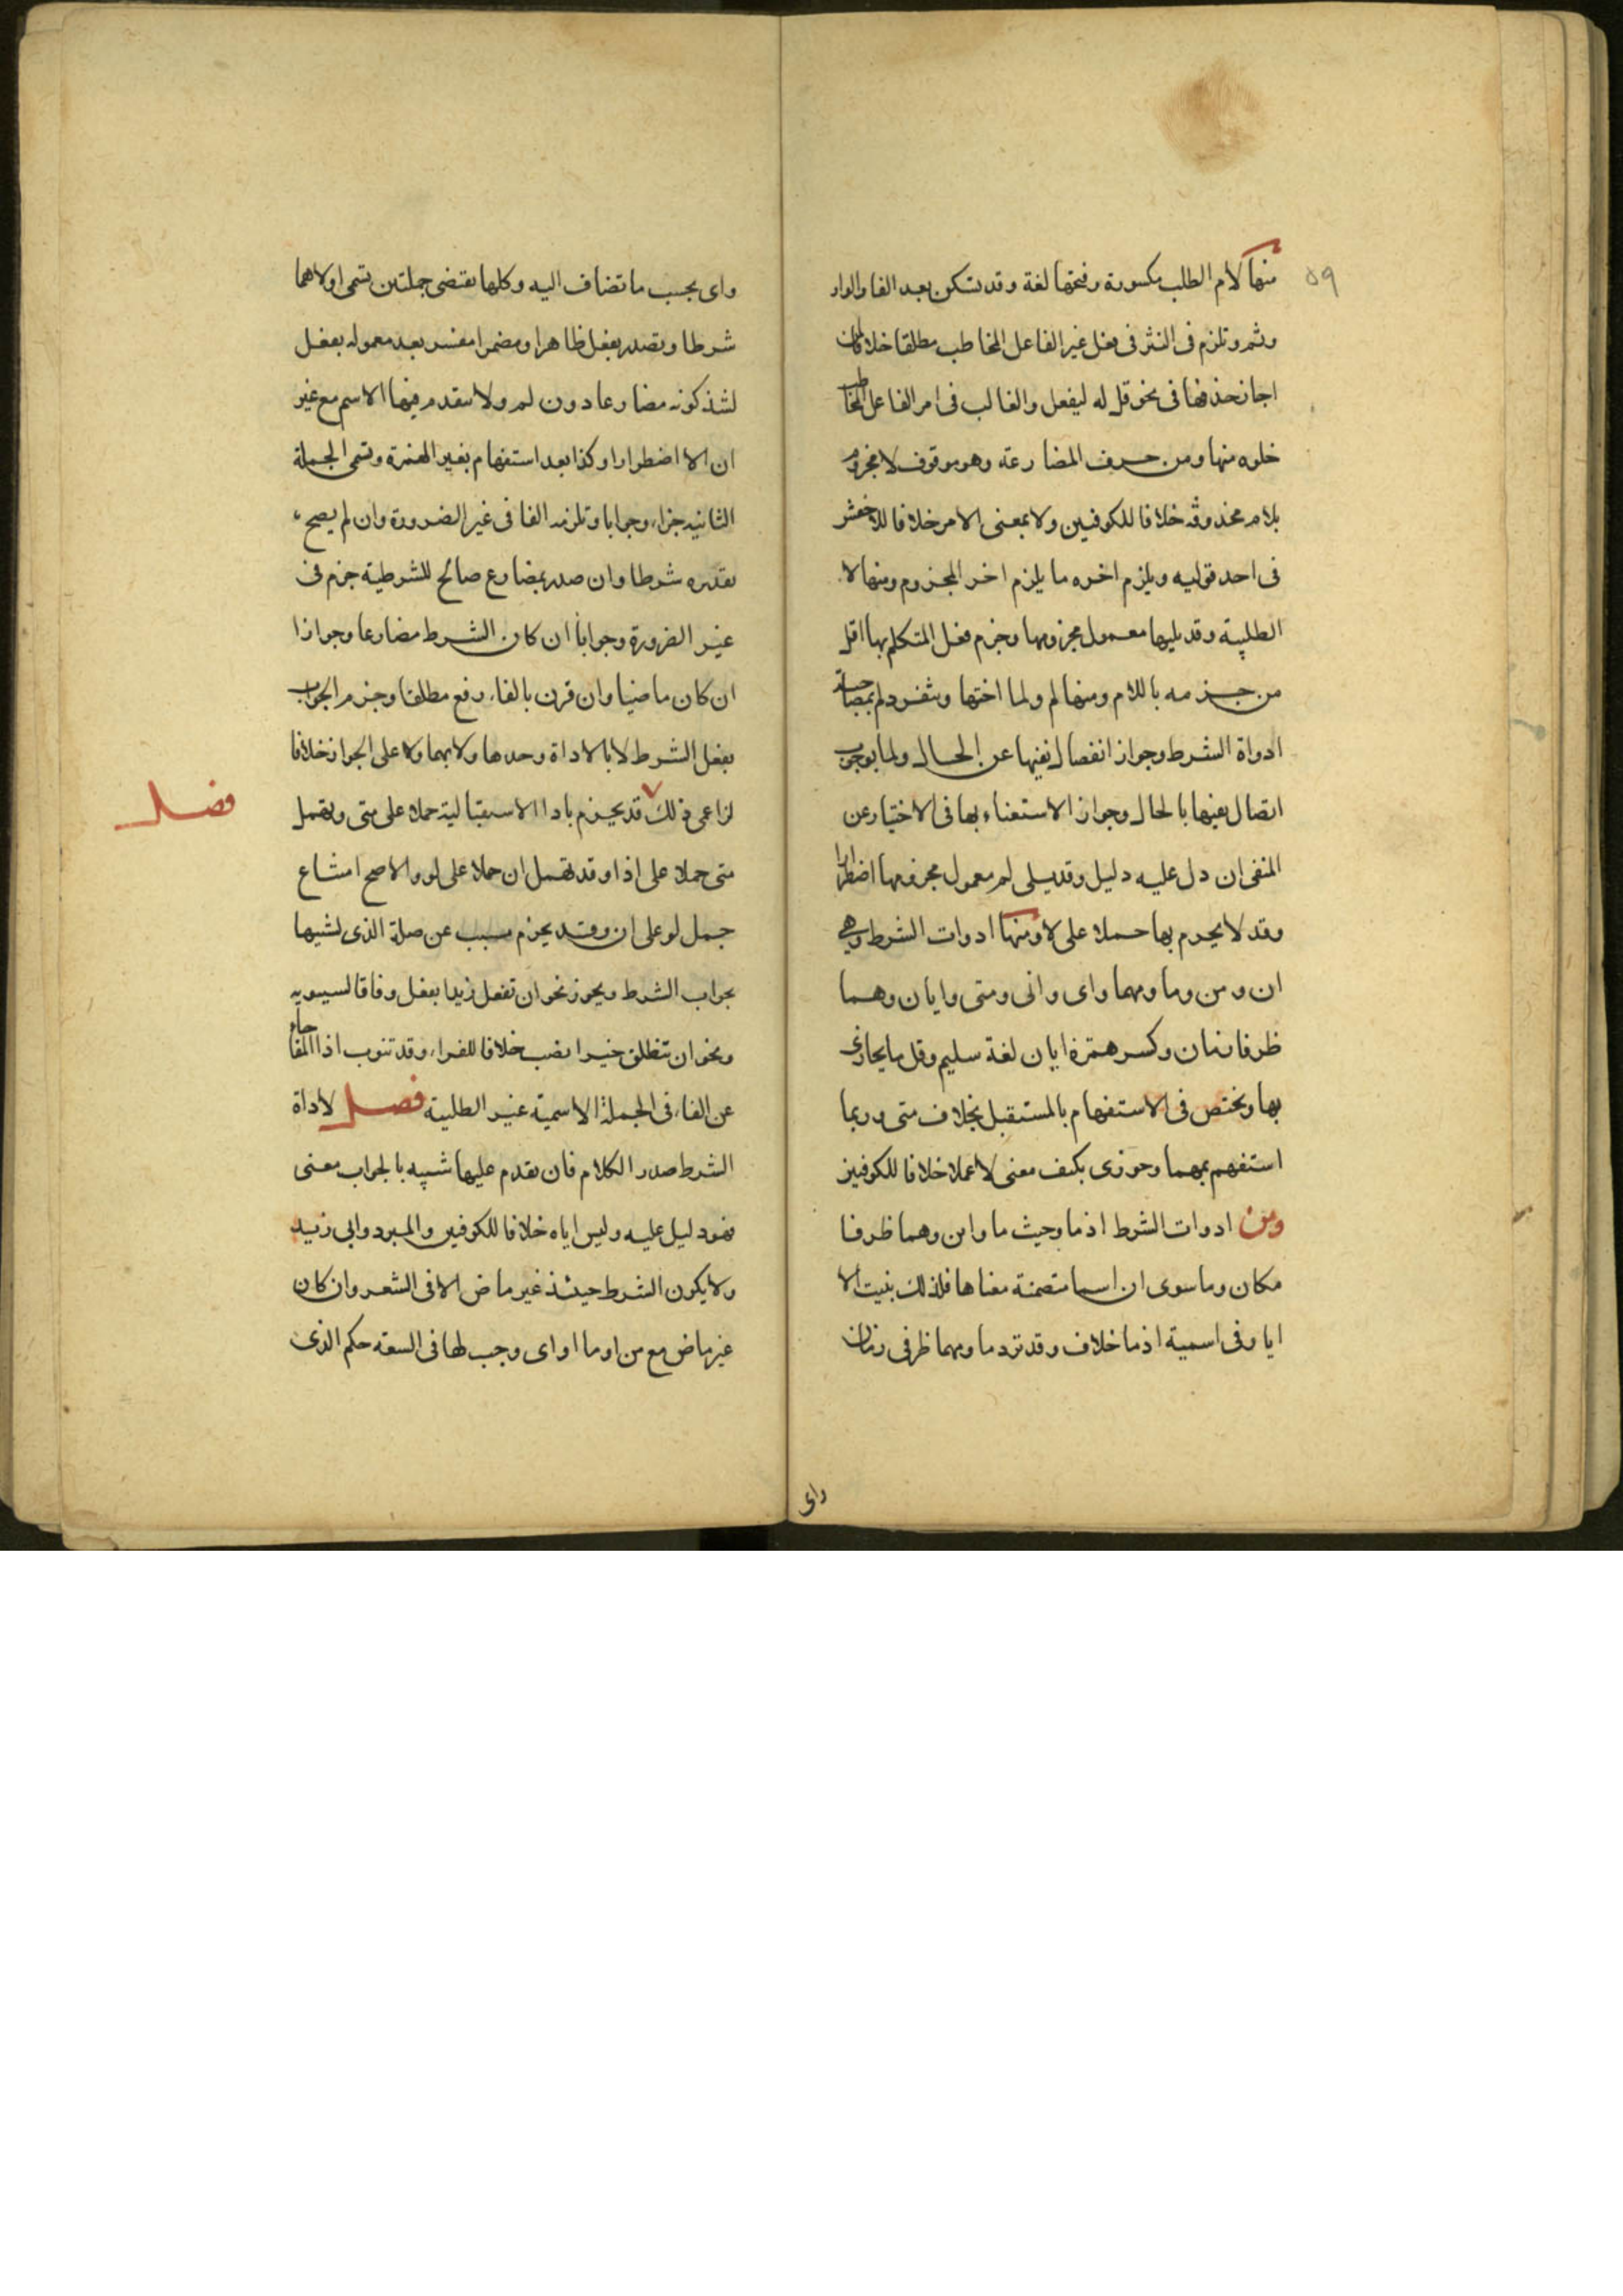 ٥٩
منها لام الطلب مكسورة وفتحها لغة وقد تسكن بعد الفا والواو
وثم وتلزم فى النثر فى فعل غير الفاعل المخاطب مطلقا خلافا لمن
اجاز حذفها فى نحو قل له ليفعل والغالب فى امر الفاعل المخاطب
خلوه منها ومن حرف المضارعة وهو موقوف لا مجزوم
بلام محذوفة خلافا للكوفيين ولا بمعنى الامر خلافا للاخفش
فى احد قوليه ويلزم اخره ما يلزم اخر المجزوم ومنها لا
الطلبية وقد يليها معمول مجزومها وجزم فعل المتكلم بها اقل
من جزمه باللام ومنها لم ولما اختها وتنفرد لم بمصاحبة
ادواة الشرط وجواز انفصال نفيها عن الحال ولما بوجوب
اتصال نفيها بالحال وجواز الاستغناء بها فى الاختيار عن
المنفى ان دل عليه دليل وقد يلى لم معمول مجزومها اضطرارا
وقد لا يجزم بها حملا على لا ومنها ادوات الشرط وهى
ان ومن وما ومهما واى وانى ومتى وايان وهما
ظرفا زمان وكسر همزة ايان لغة سليم وقل ما يجازى
بها وتختص فى الاستفهام بالمستقبل بخلاف متى وربما
استفهم بمهما وجوزى بكيف معنى لا عملا خلافا للكوفيين
ومن ادوات الشرط اذما وحيث ما واين وهما ظرفا
مكان وما سوى ان اسما متضمنة معناها فلذلك بنيت الا
ايا وفى اسمية اذما خلاف وقد ترد ما ومهما ظرفى زمان
واى
واى بحسب ما تضاف اليه وكلها تقتضى جملتين تسمى اولاهما
شرطا وتصدر بفعل ظاهر او مضمر مفسر بعد معموله بفعل
لشذ كونه مضارعا دون لم ولا يتقدم فيها الاسم مع غير
ان الا اضطرارا وكذا بعد استفهام بغير الهمزة وتسمى الجملة
الثانيه جزاء وجوابا وتلزمه الفا فى غير الضرورة وان لم يصح
تقديره شرطا وان صدر بمضارع صالح للشرطية جزم فى
غير الضرورة وجوابا ان كان الشرط مضارعا وجوازا
ان كان ماضيا وان قرن بالفاء رفع مطلقا وجزم الجواب
بفعل الشرط لا بالاداة وحدها ولا بهما ولا على الجواز خلافا
لزاعمى ذلك قد يجزم باذا الاستقبالية حملا على متى وتهمل
فصل
متى حملا على اذا وقد تهمل ان حملا على لو والاصح امتناع
حمل لو على ان وقد يجزم مسبب عن صلة الذى لشبهها
بجواب الشرط ويجوز نحو ان تفعل زيد يفعل وفاقا لسيبويه
ونحو ان تنطلق خيرا نصب خلافا للفراء وقد تنوب اذا المفاجاة
عن الفاء فى الجملة الاسمية غير الطلبية فصل لاداة
الشرط صدر الكلام فان تقدم عليها شبيه بالجواب معنى
فهو دليل عليه وليس اياه خلافا للكوفيين والمبرد وابى زيد
ولا يكون الشرط حينئذ غير ماض الا فى الشعر وان كان
غير ماض مع من او ما او اى وجب لها فى السعة حكم الذى